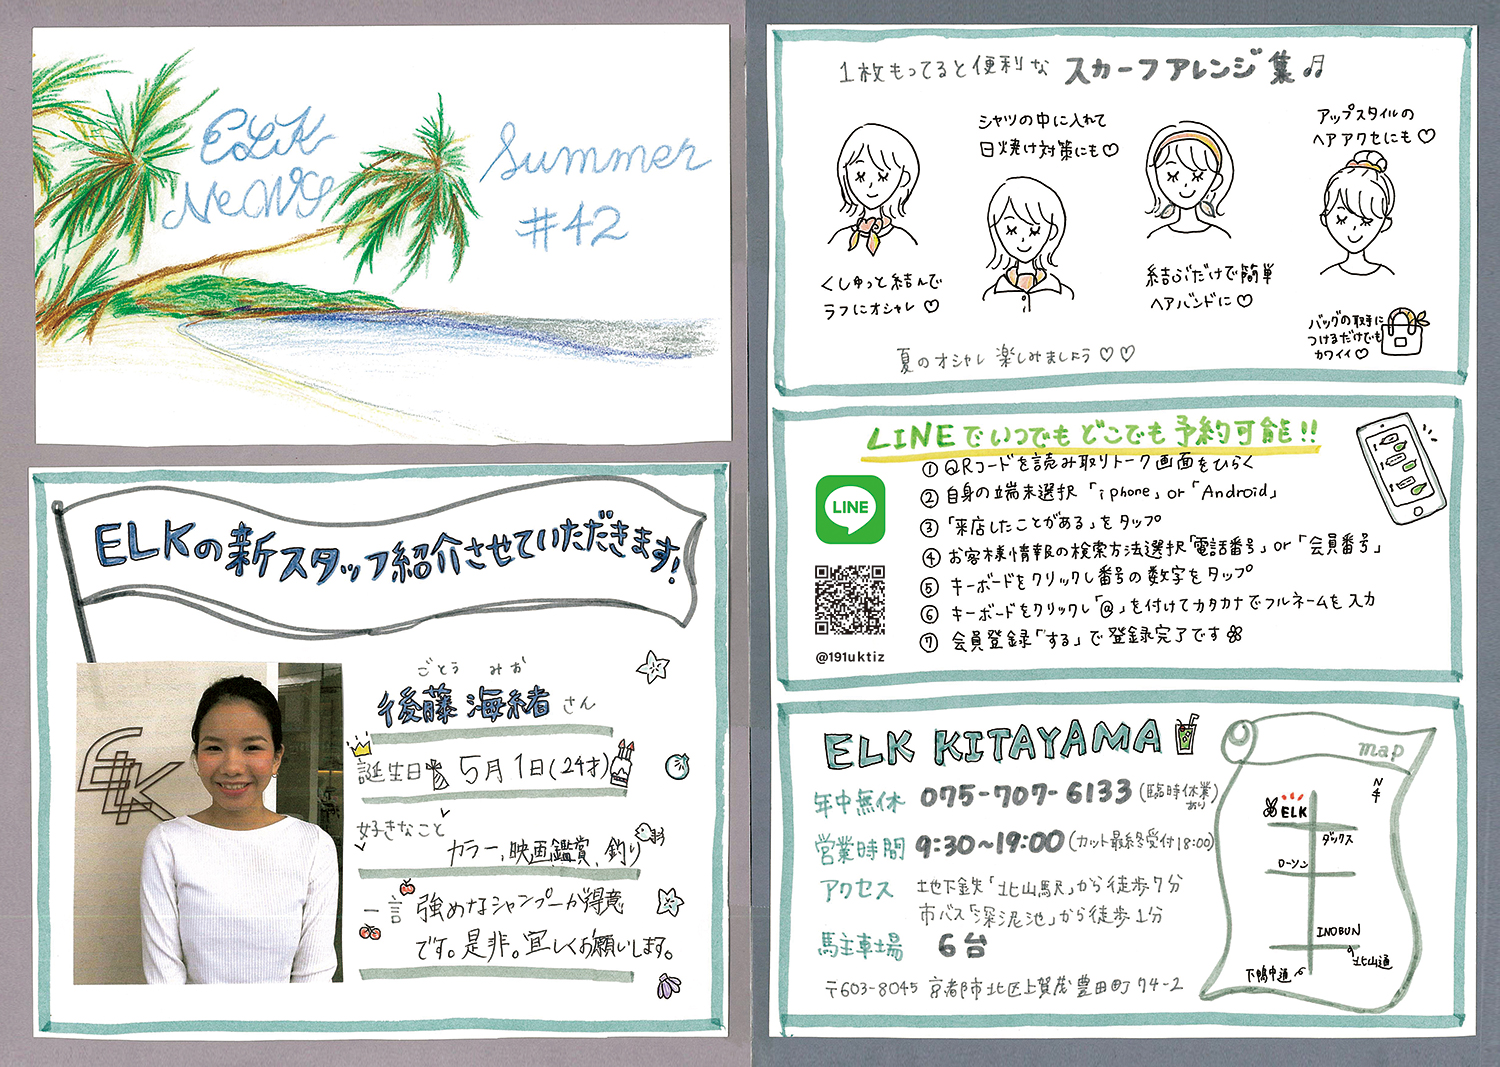 ELK
NeWS
Summer
#42
ELKの新スタッフ紹介させていただきます!
ELK
ごとう みお
後藤 海緒 さん
誕生日 5月1日(24才)
好きなこと
カラー、映画鑑賞、釣り
一言 強めなシャンプーが得意
です。是非。宜しくお願いします。
1枚もってると便利な スカーフアレンジ集♫
くしゅっと結んで
ラフにオシャレ♡
シャツの中に入れて
日焼け対策にも♡
結ぶだけで簡単
ヘアバンドに♡
アップスタイルの
ヘアアクセにも♡
バッグの取手に
つけるだけでも
カワイイ♡
夏のオシャレ 楽しみましょう♡♡
LINEでいつでもどこでも予約可能!!
LINE
@191uktiz
①QRコードを読み取りトーク画面をひらく
②自身の端末選択「iphone」or「Android」
③「来店したことがある」をタップ
④お客様情報の検索方法選択「電話番号」or「会員番号」
⑤キーボードをクリックし番号の数字をタップ
⑥キーボードをクリックし「@」を付けてカタカナでフルネームを入力
⑦会員登録「する」で登録完了です
ELK KITAYAMA
年中無休 075-707-6133(臨時休業あり)
営業時間 9:30~19:00(カット最終受付18:00)
アクセス 地下鉄「北山駅」から徒歩7分
市バス「深泥池」から徒歩1分
駐車場 6台
〒603-8045 京都市北区上賀茂豊田町74-2
map
N
ELK
ダックス
ローソン
INOBUN
北山通
下鴨中通